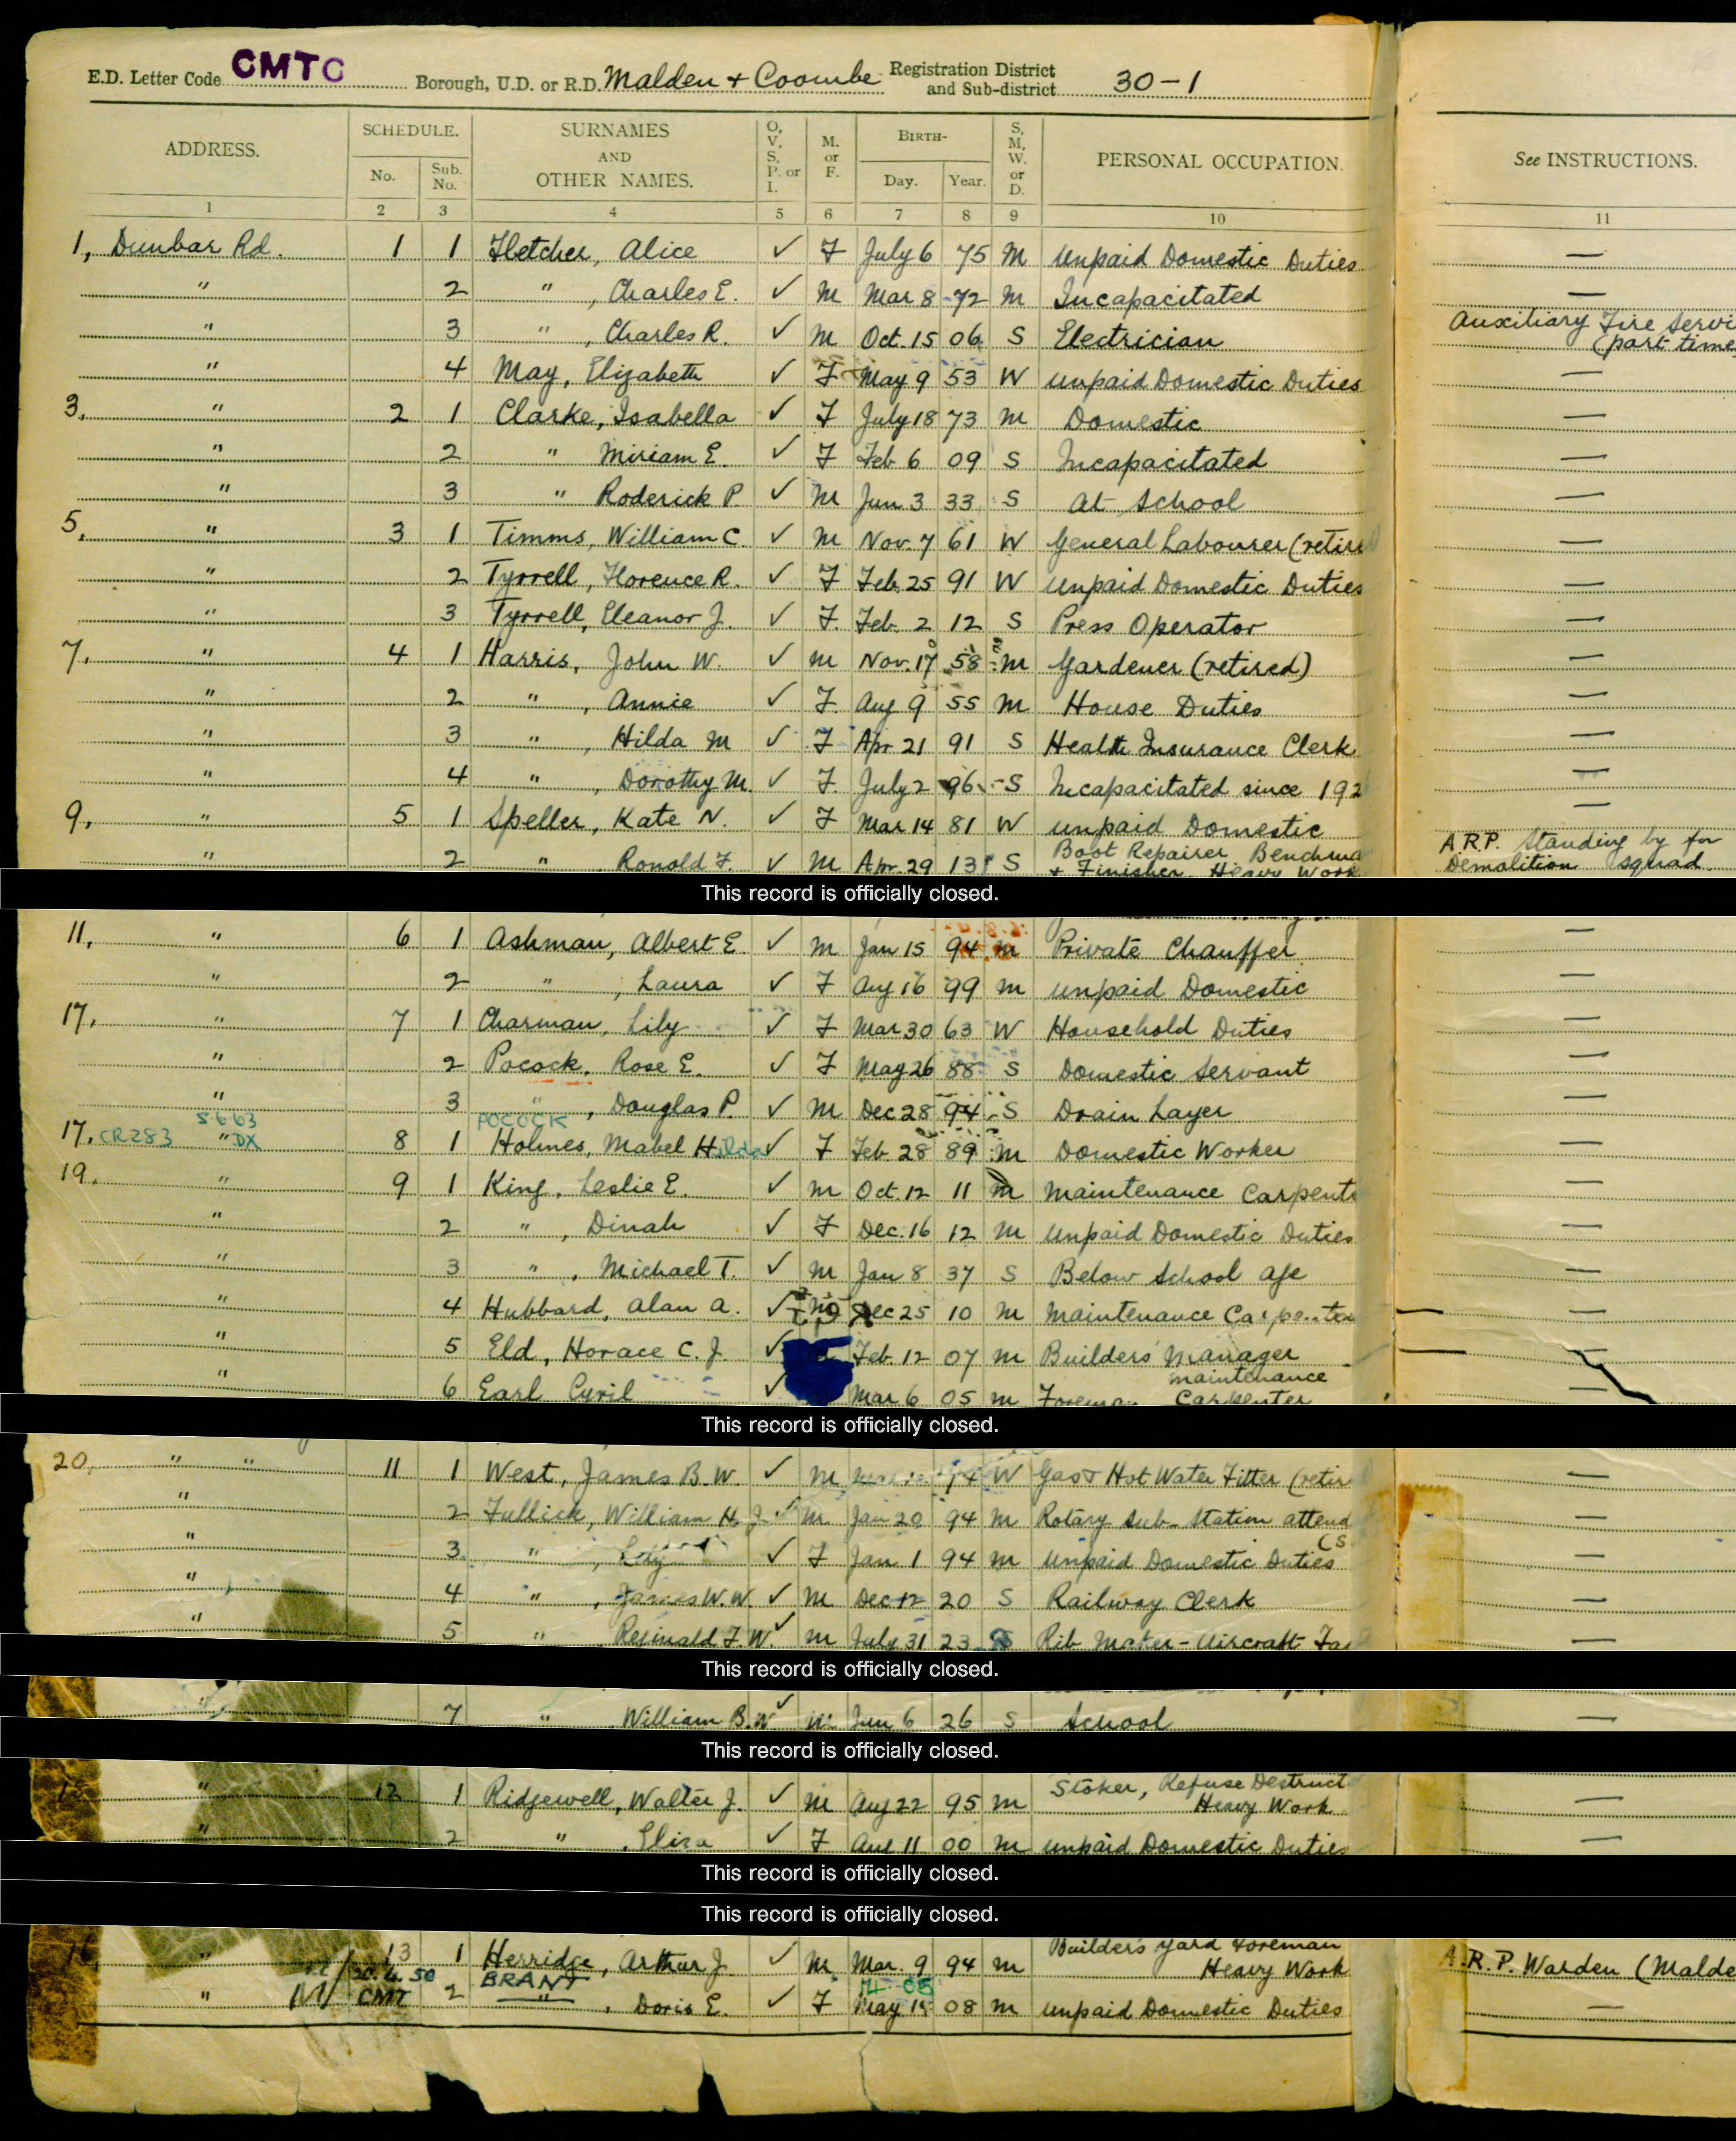 E.D. Letter Code CMTC Borough, U.D. or R.D. Malden + Coombe Registration District and Sub-district 30-1
ADDRESS. SCHEDULE. No. Sub. No. SURNAMES AND OTHER NAMES. O, V, S, P. or I. M. or F. BIRTH- Day. Year. S, M, W. or D. PERSONAL OCCUPATION. See INSTRUCTIONS.
1 2 3 4 5 6 7 8 9 10 11
1, Dunbar Rd. 1 1 Fletcher, Alice ✓ F July 6 75 M Unpaid Domestic Duties —
" 2 " , Charles E. ✓ M Mar 8 72 M Incapacitated —
" 3 " , Charles R. ✓ M Oct. 15 06 S Electrician Auxiliary Fire Servi (part time
" 4 May, Elizabeth ✓ F May 9 53 W Unpaid Domestic Duties —
3. " 2 1 Clarke, Isabella ✓ F July 18 73 M Domestic —
" 2 " Miriam E. ✓ F Feb 6 09 S Incapacitated —
" 3 " Roderick P. ✓ M Jun 3 33 S At School —
5. " 3 1 Timms, William C ✓ M Nov. 7 61 W General Labourer (retire —
" 2 Tyrrell, Florence R. ✓ F Feb. 25 91 W Unpaid Domestic Duties —
" 3 Tyrrell, Eleanor J. ✓ F. Feb. 2 12 S Press Operator —
7. " 4 1 Harris, John W. ✓ M Nov. 17 58 M Gardener (retired) —
" 2 " , Annie ✓ F. Aug 9 55 M House Duties —
" 3 " , Hilda M ✓ F Apr 21 91 S Health Insurance Clerk —
" 4 " , Dorothy M. ✓ F. July 2 96 S Incapacitated since 192 —
9, " 5 1 Speller, Kate N. ✓ F Mar 14 81 W unpaid Domestic —
" 2 " Ronald F. ✓ M Apr. 29 13 S Boot Repairer Benchma + Finisher. Heavy Work A.R.P. Standing by for Demolition squad.
This record is officially closed.
11, " 6 1 Ashman, Albert E. ✓ M Jan 15 94 M Private Chauffer —
" 2 " , Laura ✓ F Aug 16 99 M unpaid Domestic —
17. " 7 1 Charman, Lily ✓ F Mar 30 63 W Household Duties —
" 2 Pocock, Rose E. ✓ F May 26 88 S Domestic Servant —
" 3 " , Douglas P. ✓ M Dec 28 94 S Drain Layer —
5663 POCOCK
17. CR283 " DX 8 1 Holmes, Mabel Hilda ✓ F Feb. 28 89 M Domestic Worker —
19. " 9 1 King, Leslie E. ✓ M Oct. 12 11 M Maintenance Carpente —
" 2 " , Dinah ✓ F Dec. 16 12 M Unpaid Domestic Duties —
" 3 " , Michael T. ✓ M Jan 8 37 S Below School age —
" 4 Hubbard, Alan A. ✓ Dec 25 10 M Maintenance Carpenter —
" 5 Eld, Horace C. J. ✓ Feb. 12 07 M Builders' Manager —
" 6 Earl Cyril ✓ Mar 6 05 M Forema Maintenance Carpenter —
This record is officially closed.
20, " " 11 1 West, James B. W. ✓ M 74 W Gas & Hot Water Fitter (retire —
" 2 Fullick, William H. J. ✓ M Jan 20 94 M Rotary Sub-Station attend —
" 3 " , Lily ✓ F Jan. 1 94 M Unpaid Domestic Duties —
" 4 " , James W. W. ✓ M Dec 12 20 S Railway Clerk —
" 5 " Reginald F. W. ✓ M July 31 23 S Rib Maker - Aircraft Fac —
This record is officially closed.
" 7 " William B. W ✓ M Jun 6 26 S School —
This record is officially closed.
" 12 1 Ridgewell, Walter J. ✓ M Aug 22 95 M Stoker, Refuse Destruct Heavy Work —
" 2 " , Eliza ✓ F Aug 11 00 M unpaid Domestic Duties —
This record is officially closed.
This record is officially closed.
16, " 13 1 Herridge, Arthur J. ✓ M. Mar. 9 94 M Builders Yard Foreman Heavy Work A.R.P. Warden (Malde
20.4.50 BRANT 14 05
" M CMT 2 " , Doris E. ✓ F May 15 08 M unpaid Domestic Duties —